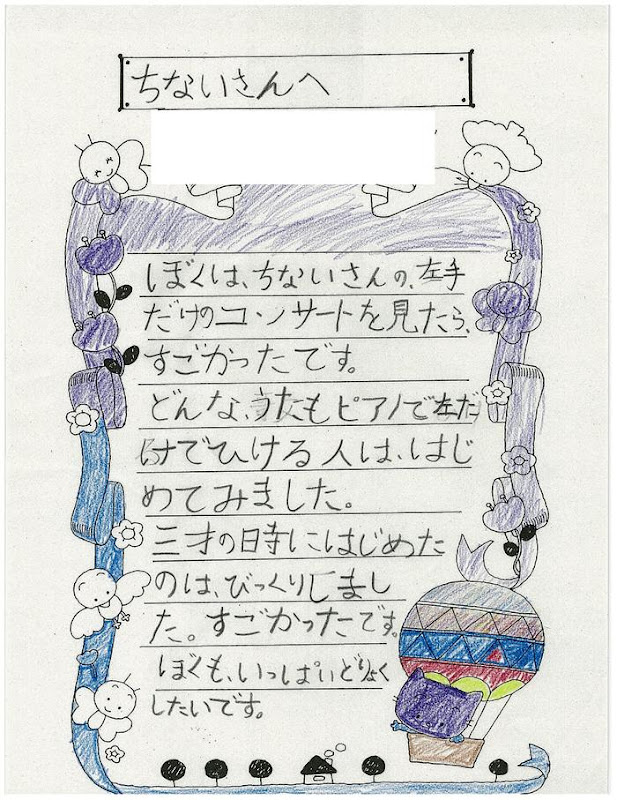 ちないさんへ
ぼくは、ちないさんの、左手
だけのコンサートを見たら、
すごかったです。
どんな、うたもピアノで左だ
けでひける人は、はじ
めてみました。
三才の日寺にはじめた
のは、びっくりしまし
た。すごかったです。
ぼくも、いっぱいどりょく
したいです。